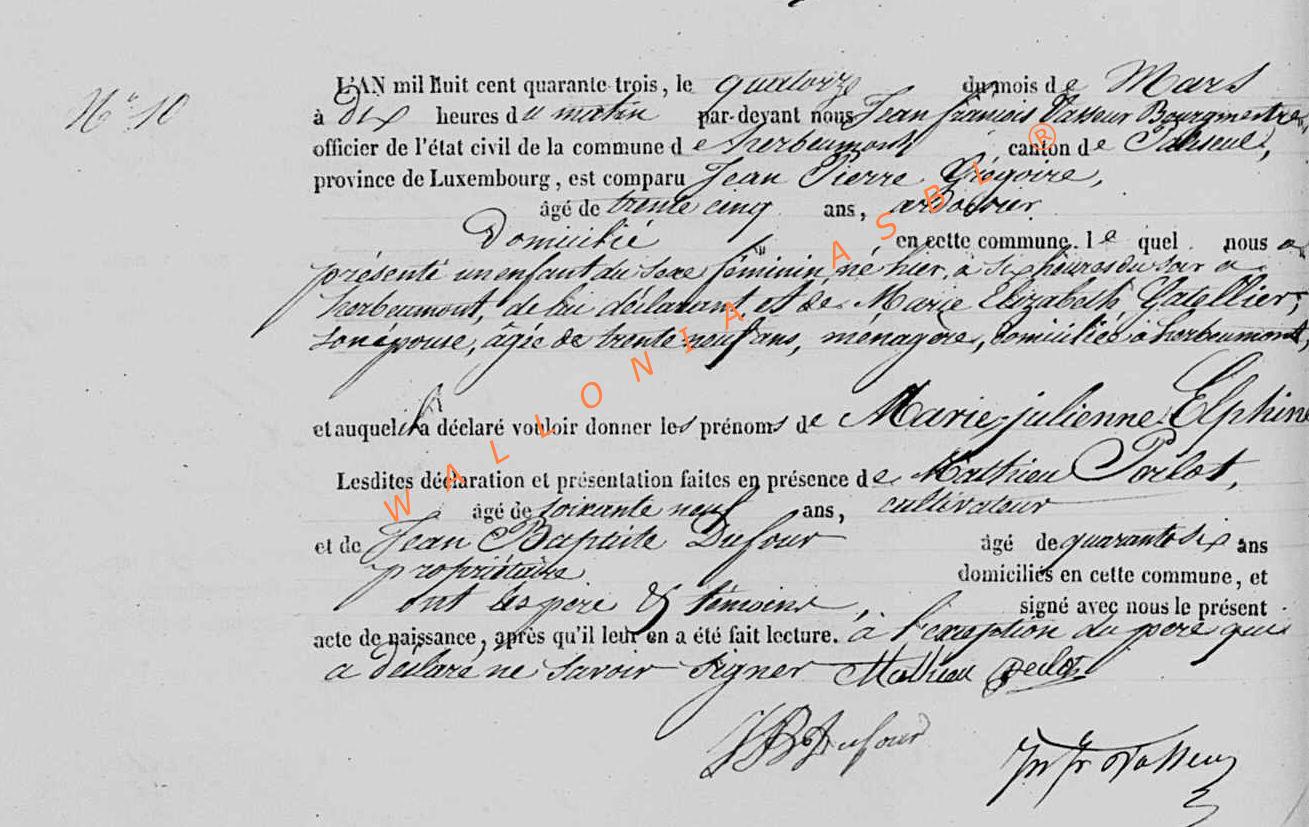 N° 10
L'AN mil huit cent quarante-trois, le quatorze du mois de Mars
à Dix heures du matin par-devant nous Jean françois Vasseur Bourgmestre
officier de l'état civil de la commune de herbeumont canton de Paliseul,
province de Luxembourg, est comparu Jean Pierre Grégoire,
âgé de trente cinq ans, ardoisier
Domicilié en cette commune. le quel nous a
présenté un enfant du sexe féminin né hier, à six heures du soir a
herbeumont, de lui déclarant, et de Marie Elizabeth Gatellier,
son épouse, âgée de trente neuf ans, ménagère, domiciliés à herbeumont,
et auquel il a déclaré vouloir donner les prénoms de Marie-julienne Elphine
Lesdites déclaration et présentation faites en présence de Mathieu Poclot,
âgé de soixante neuf ans, cultivateur
et de Jean Baptiste Dufour âgé de quarante six ans
propriétaire domiciliés en cette commune, et
ont les père & témoins, signé avec nous le présent
acte de naissance, après qu'il leur en a été fait lecture. à l'exception du père qui
a déclaré ne savoir signer Mathieu
JB Dufour
Jn fr Vasseur
WALLONIA ASBL ®